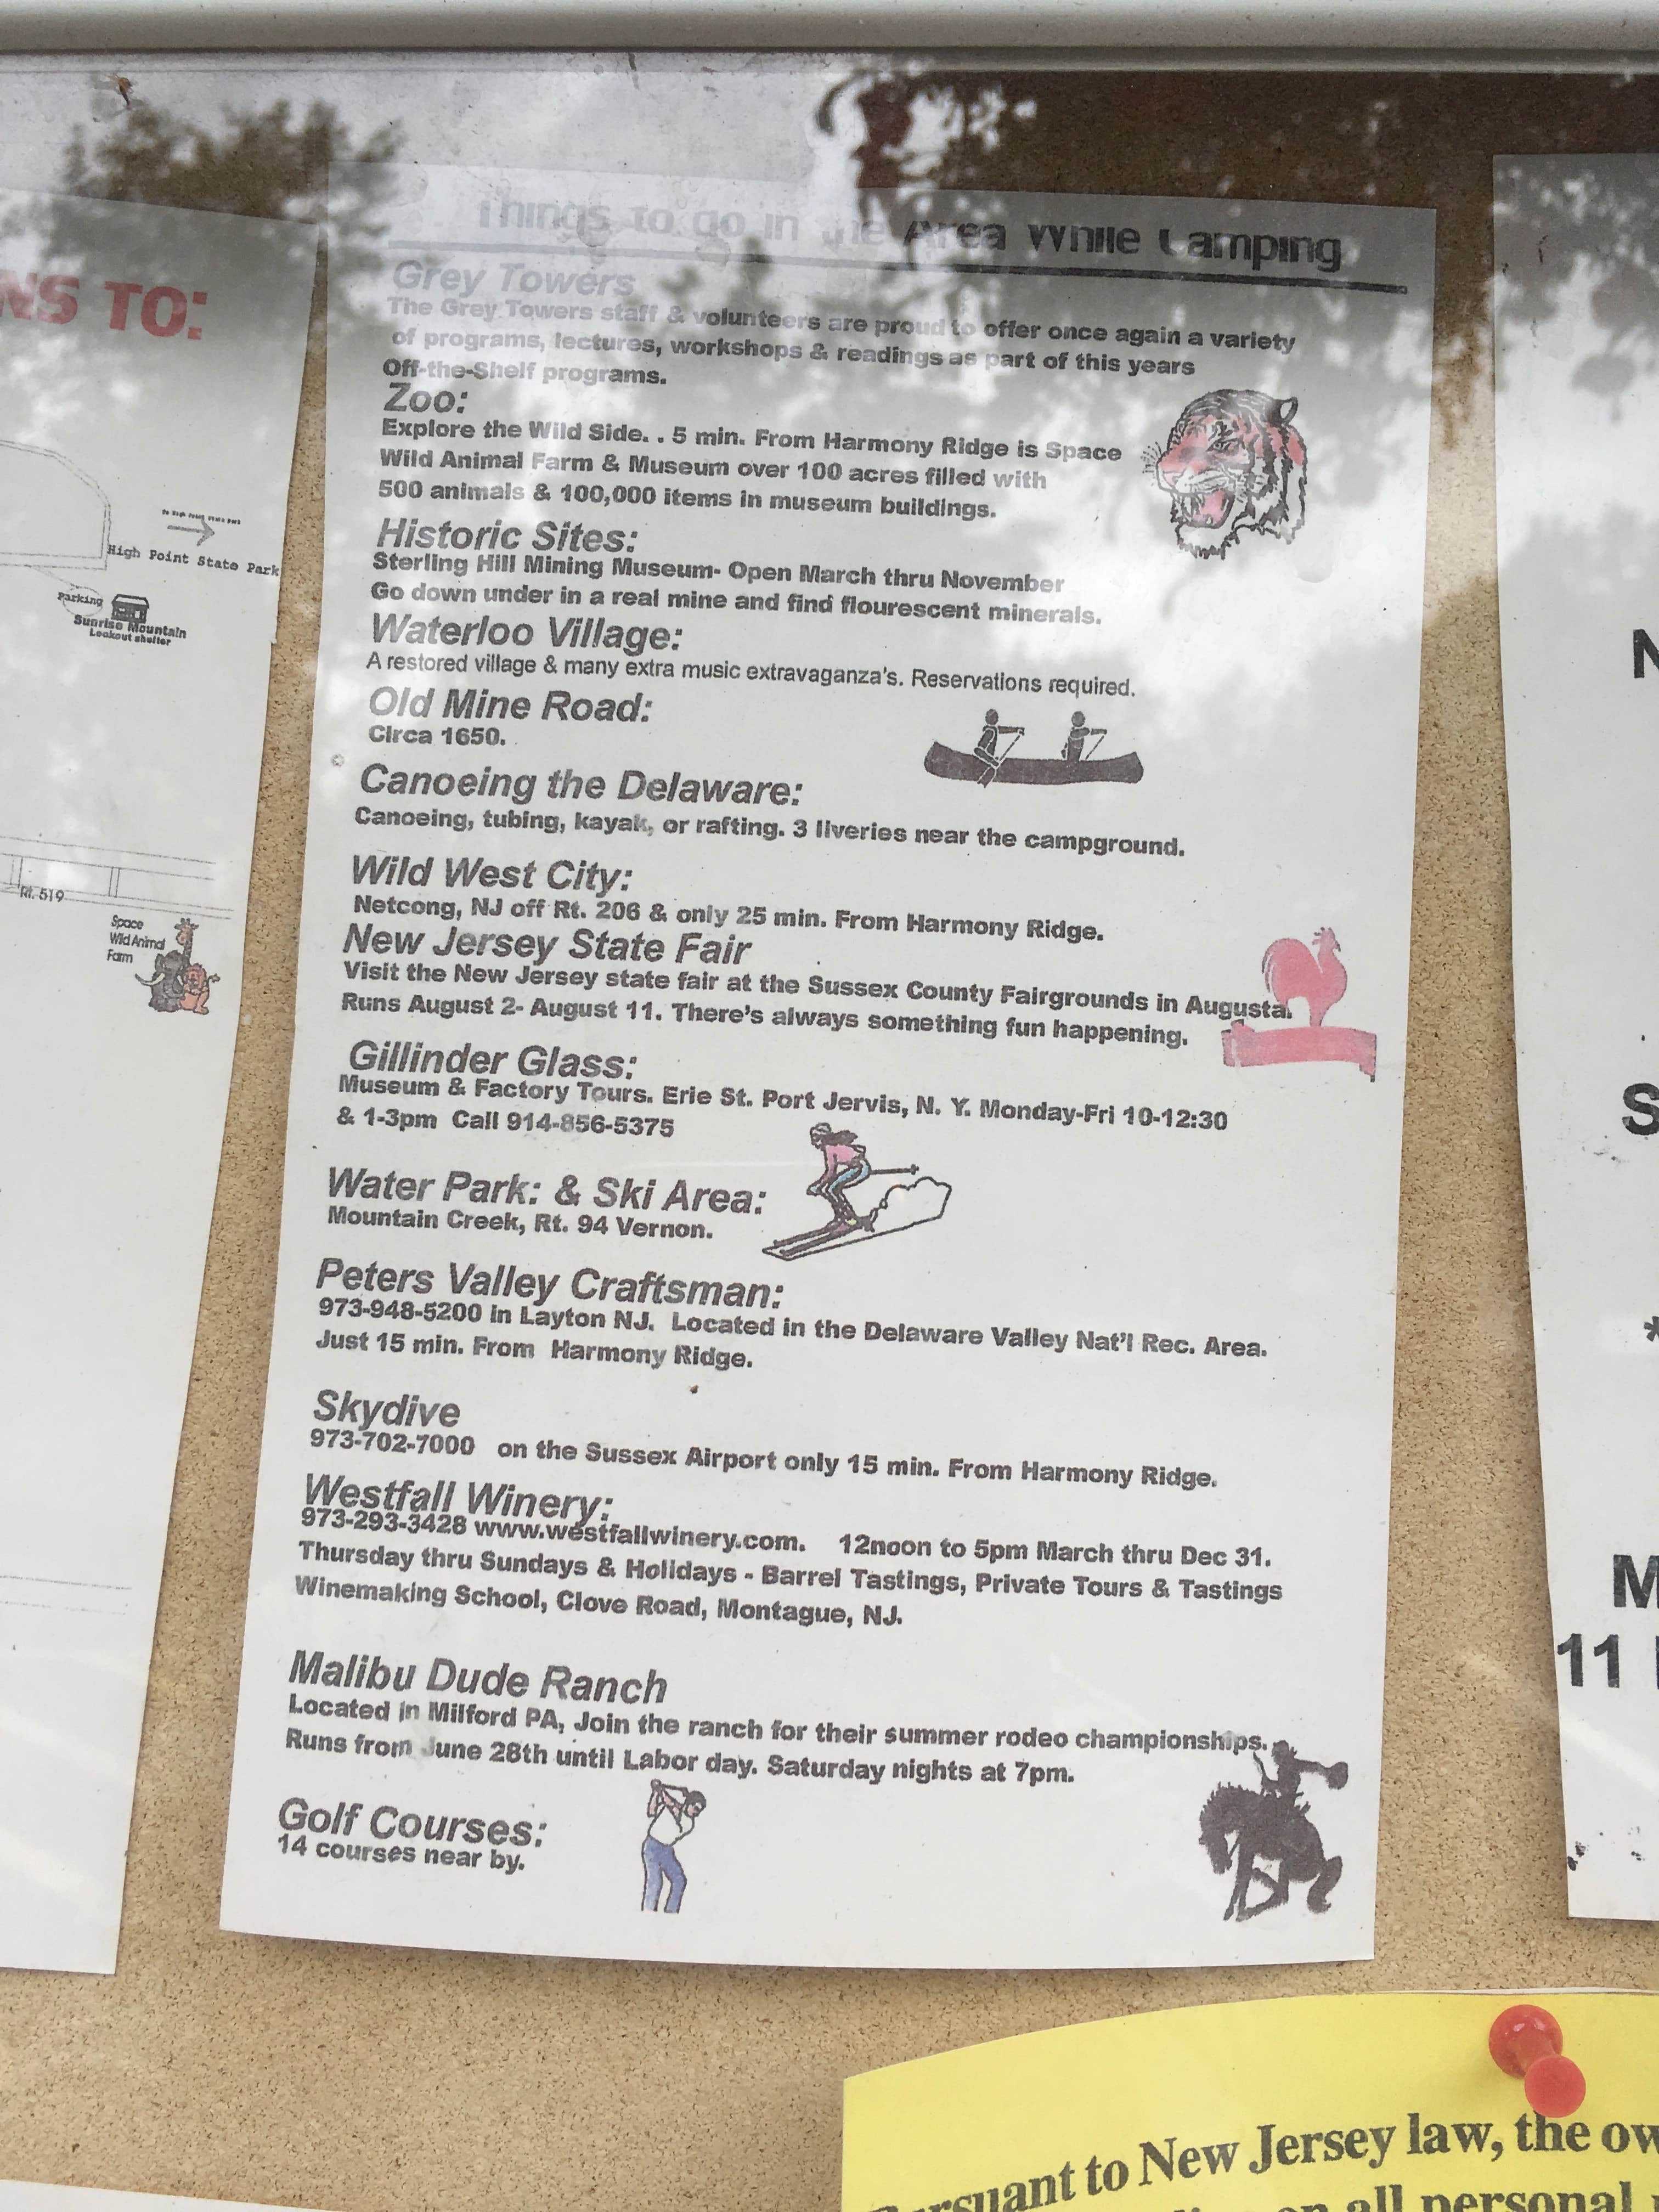 Things to do in the Area While Camping
Grey Towers
The Grey Towers staff & volunteers are proud to offer once again a variety
of programs, lectures, workshops & readings as part of this years
Off-the-Shelf programs.
Zoo:
Explore the Wild Side. . 5 min. From Harmony Ridge is Space
Wild Animal Farm & Museum over 100 acres filled with
500 animals & 100,000 items in museum buildings.
Historic Sites:
Sterling Hill Mining Museum- Open March thru November
Go down under in a real mine and find flourescent minerals.
Waterloo Village:
A restored village & many extra music extravaganza's. Reservations required.
Old Mine Road:
Circa 1650.
Canoeing the Delaware:
Canoeing, tubing, kayak, or rafting. 3 liveries near the campground.
Wild West City:
Netcong, NJ off Rt. 206 & only 25 min. From Harmony Ridge.
New Jersey State Fair
Visit the New Jersey state fair at the Sussex County Fairgrounds in Augusta.
Runs August 2- August 11. There's always something fun happening.
Gillinder Glass:
Museum & Factory Tours. Erie St. Port Jervis, N. Y. Monday-Fri 10-12:30
& 1-3pm Call 914-856-5375
Water Park: & Ski Area:
Mountain Creek, Rt. 94 Vernon.
Peters Valley Craftsman:
973-948-5200 in Layton NJ. Located in the Delaware Valley Nat'l Rec. Area.
Just 15 min. From Harmony Ridge.
Skydive
973-702-7000 on the Sussex Airport only 15 min. From Harmony Ridge.
Westfall Winery:
973-293-3428 www.westfallwinery.com. 12noon to 5pm March thru Dec 31.
Thursday thru Sundays & Holidays - Barrel Tastings, Private Tours & Tastings
Winemaking School, Clove Road, Montague, NJ.
Malibu Dude Ranch
Located in Milford PA, Join the ranch for their summer rodeo championships.
Runs from June 28th until Labor day. Saturday nights at 7pm.
Golf Courses:
14 courses near by.
NS TO:
High Point State Park
Parking
Sunrise Mountain
Lookout shelter
Rt. 519
Space
Wild Animal
Farm
N
S
*
M
11
to New Jersey law, the ow
on all personal